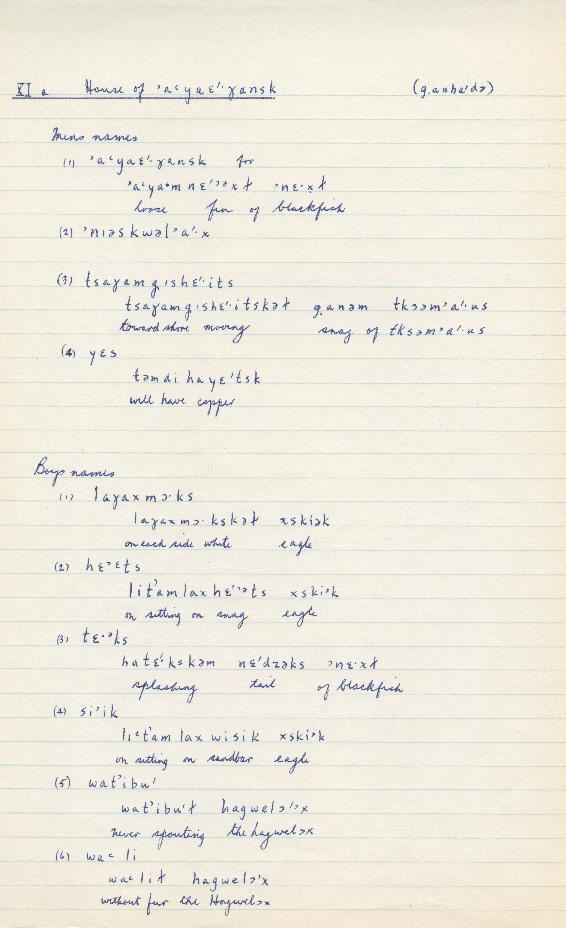 XI a House of ʼaᶜyaɛ́·ɣansk (g̣anhaʹdə)
Mens names
(1) ʼaᶜyaɛ́·ɣansk for
ʼaᶜya·m nɛ́·ʼəxɬ ʼnɛ·x̣ɬ
loose fin of blackfish
(2) ʼnıəskwəlʼaʹ·x
(3) tsaɣamg̣ıshɛ́·its
tsaɣamg̣ıshɛ́·itskəɬ g̣anəm tksəmʼaʹ·us
toward shore moving snag of tksəmʼaʹ·us
(4) yɛs
təmdi hayɛʹtsk
will have copper
Boys names
(1) laɣaxmɔ·ks
laɣaxmɔ·kskəɬ xskiək
on each side white eagle
(2) hɛʼɛts
litʼam lax hɛ́ʼəts xskiʼk
on sitting on snag eagle
(3) tɛ·ʼks
hatɛ́·kskəm nɛʹdzəks ʼnɛ·xɬ
splashing tail of blackfish
(4) siʼik
liᶜtʼam lax wisik xskiʼk
on sitting on sandbar eagle
(5) watʼibuʹ
watʼibuʹɬ hagwelɔʹʼx
never spouting the hagwelɔx
(6) waᶜ li
waᶜ liɬ hagwelɔʼx
without fur the Hagwelɔx